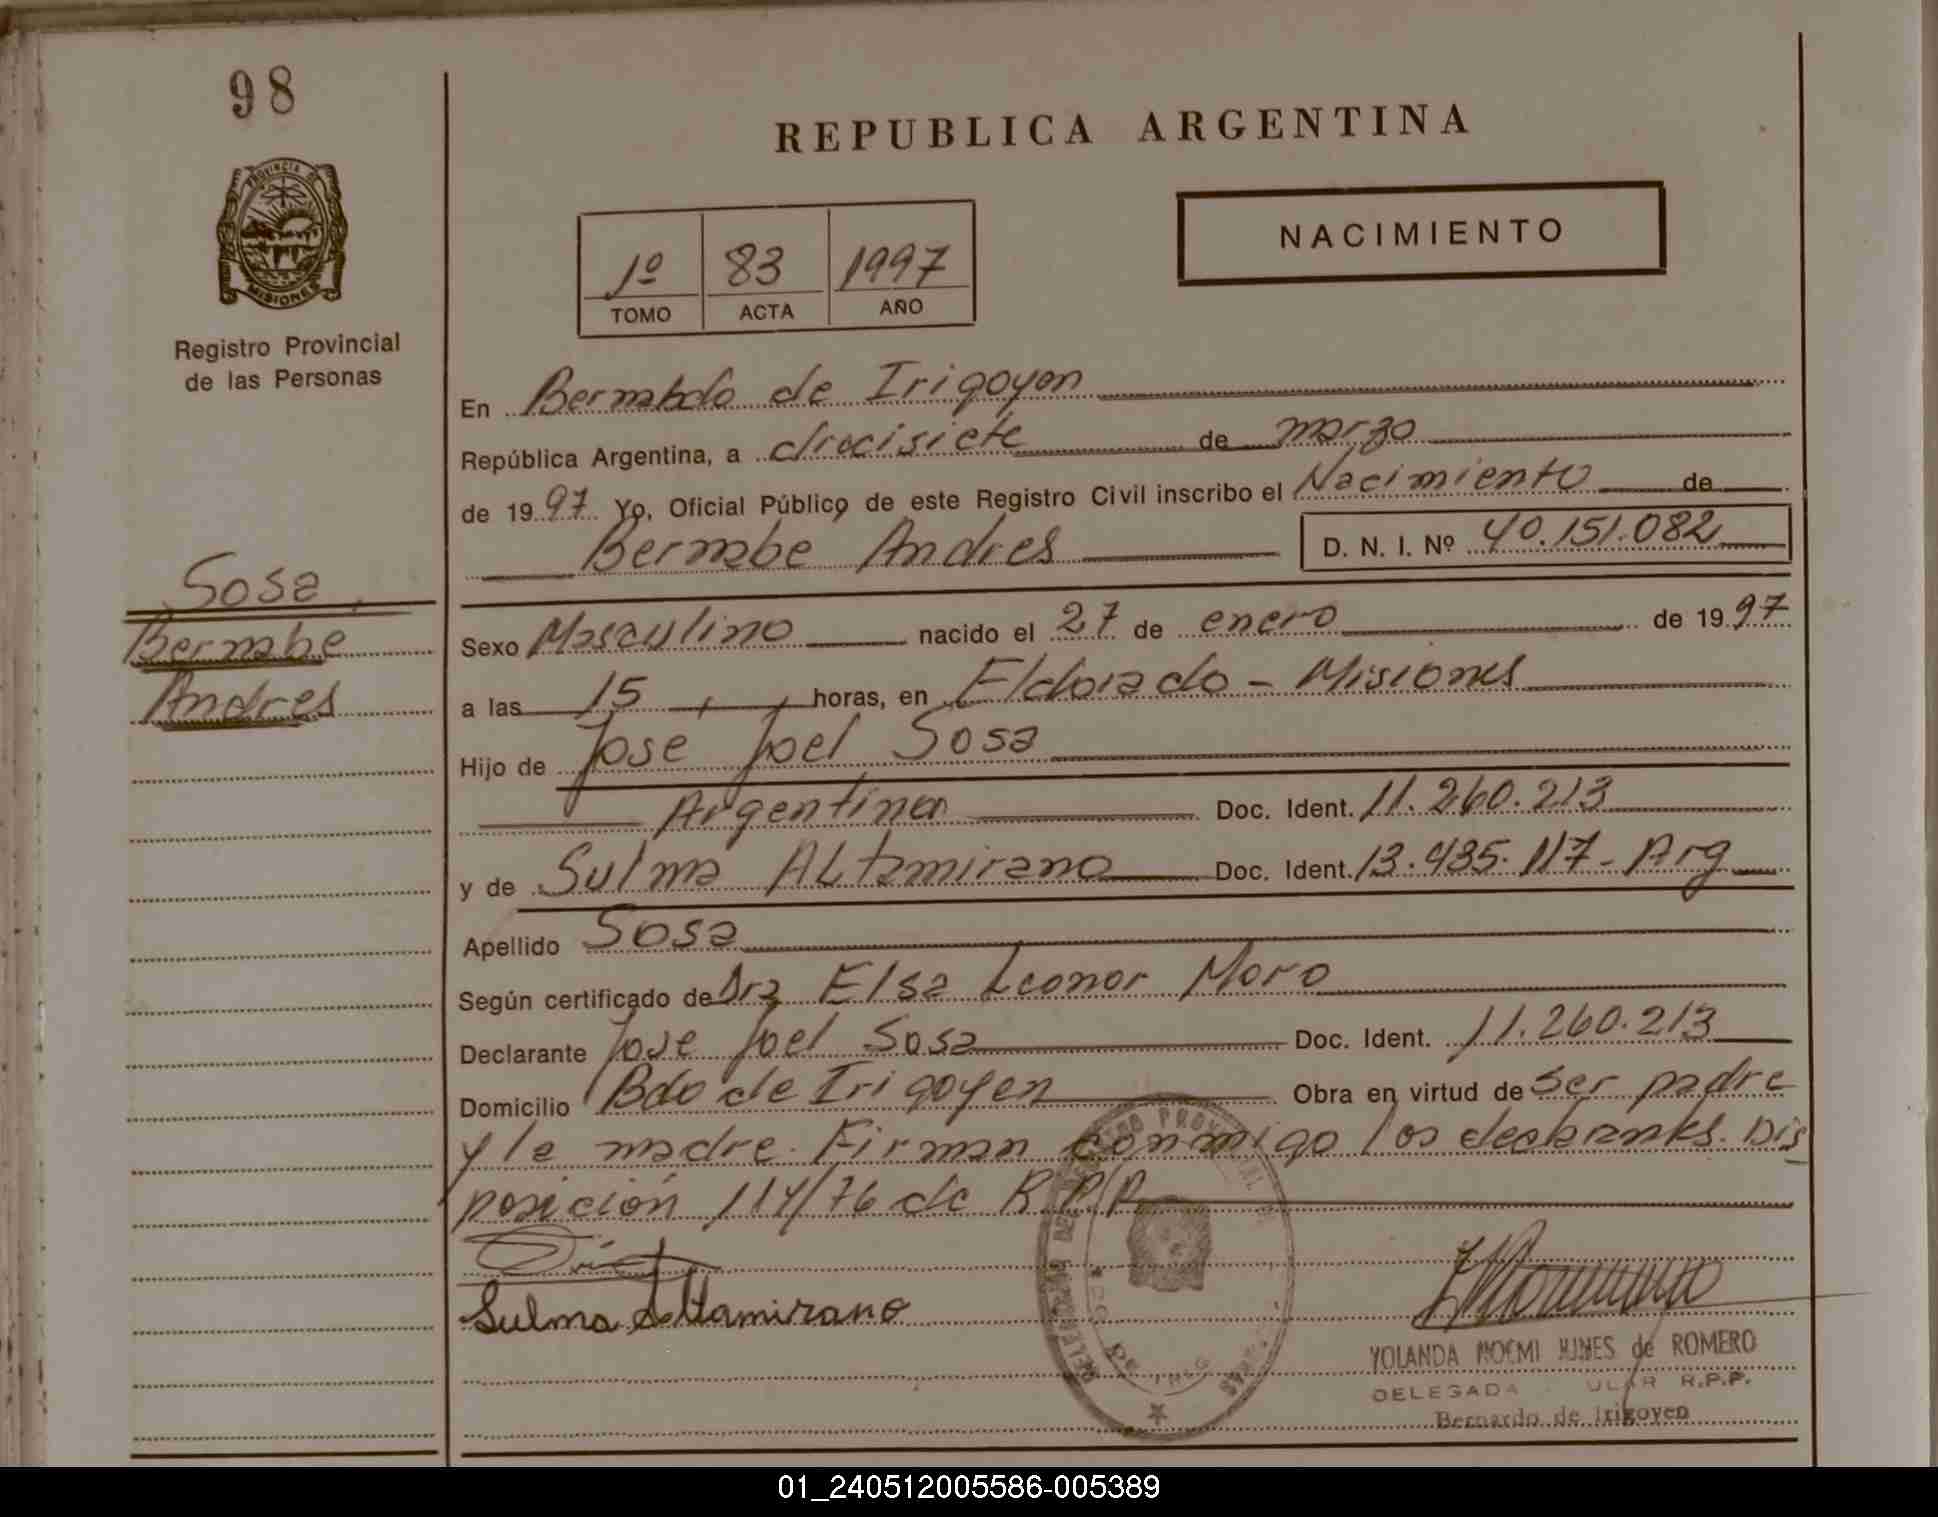 98
REPUBLICA ARGENTINA
PROVINCIA DE
MISIONES
NACIMIENTO
1º 83 1997
TOMO ACTA AÑO
Registro Provincial
de las Personas
En Bernardo de Irigoyen
República Argentina, a diecisiete de marzo
de 1997 Yo, Oficial Público de este Registro Civil inscribo el Nacimiento de
Bernabe Andres D. N. I. Nº 40.151.082
Sosa,
Bernabe
Andres
Sexo Masculino nacido el 27 de enero de 1997
a las 15 , , horas, en Eldorado - Misiones
Hijo de Jose Joel Sosa
Argentina Doc. Ident. 11.260.213
y de Sulma Altamirano Doc. Ident. 13.485.117 - Arg
Apellido Sosa
Según certificado de Dra Elsa Leonor Moro
Declarante Jose Joel Sosa Doc. Ident. 11.260.213
Domicilio Bdo de Irigoyen Obra en virtud de ser padre
y la madre. Firman conmigo los declarantes. Dis
posición 114/76 de R.P.P.
Sulma Altamirano
YOLANDA NOEMI de ROMERO
DELEGADA R.P.P.
Bernardo de Irigoyen
01_240512005586-005389